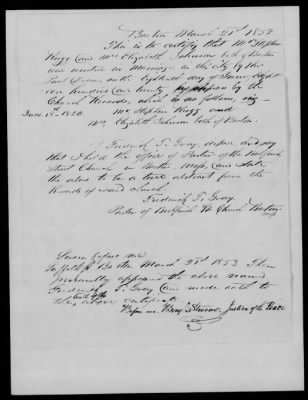 Boston March 21st 1853
This is to certify that Mr Stephen
Hogg and Mrs Elizabeth Johnson both of Boston
was united in Marriage in this city by the
on the eighteenth day of June, Eight
een hundred and twenty, as by the
Church Records, which is as follows viz—
June 18-1820. Mr Stephen Hogg and
Mrs Elizabeth Johnson both of Boston.
I Frederick T. Gray, depose, and say
that I hold the office of Pastor of the Bulfinch
Street Church in Boston Mass, and that
the above to be a true abstract from the
Records of said Church.
Frederick T. Gray
Pastor of Bulfinch St Church Boston
Mass
Sworn before me
Suffolk ss Boston March 23d 1853 Then
personally appeared the above named
Frederick T. Gray and made oath to
the truth of the above certificate
Before me. Benj. Stevens, Justice of the Peace